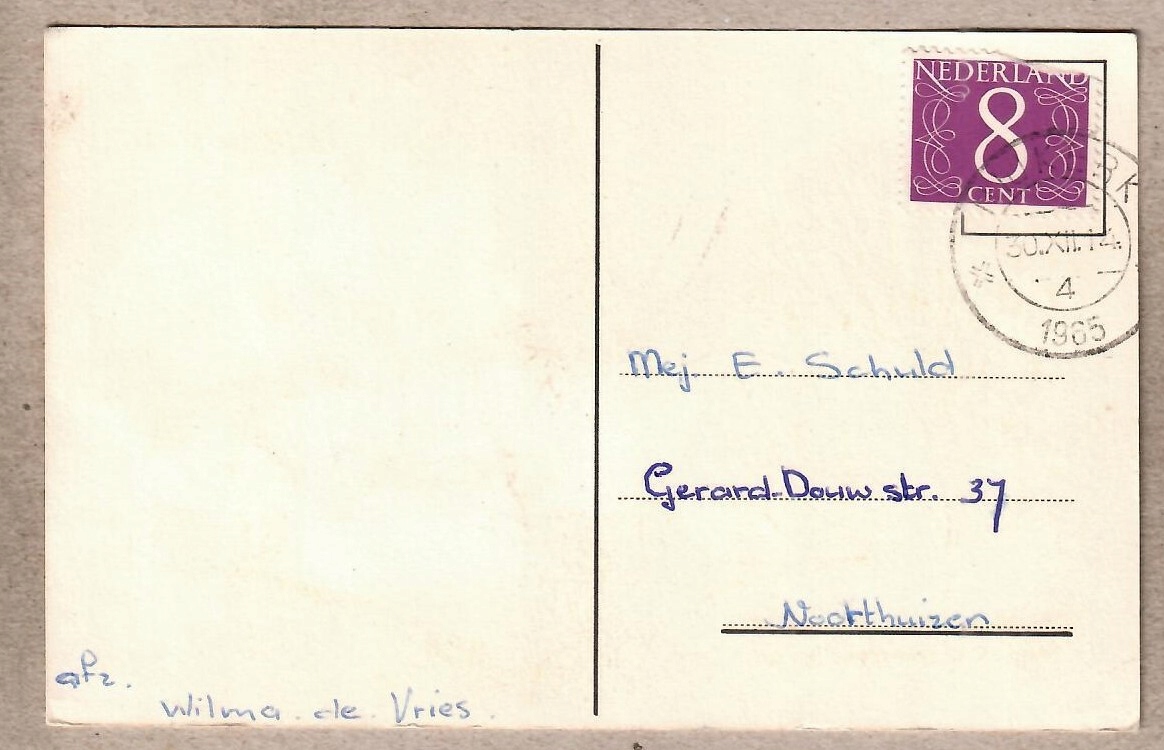 NEDERLAND
8
CENT
30.XII.14.
4
1965
Mej. E. Schuld
Gerard-Douw str. 37
Noothuizen
afz.
Wilma de Vries.